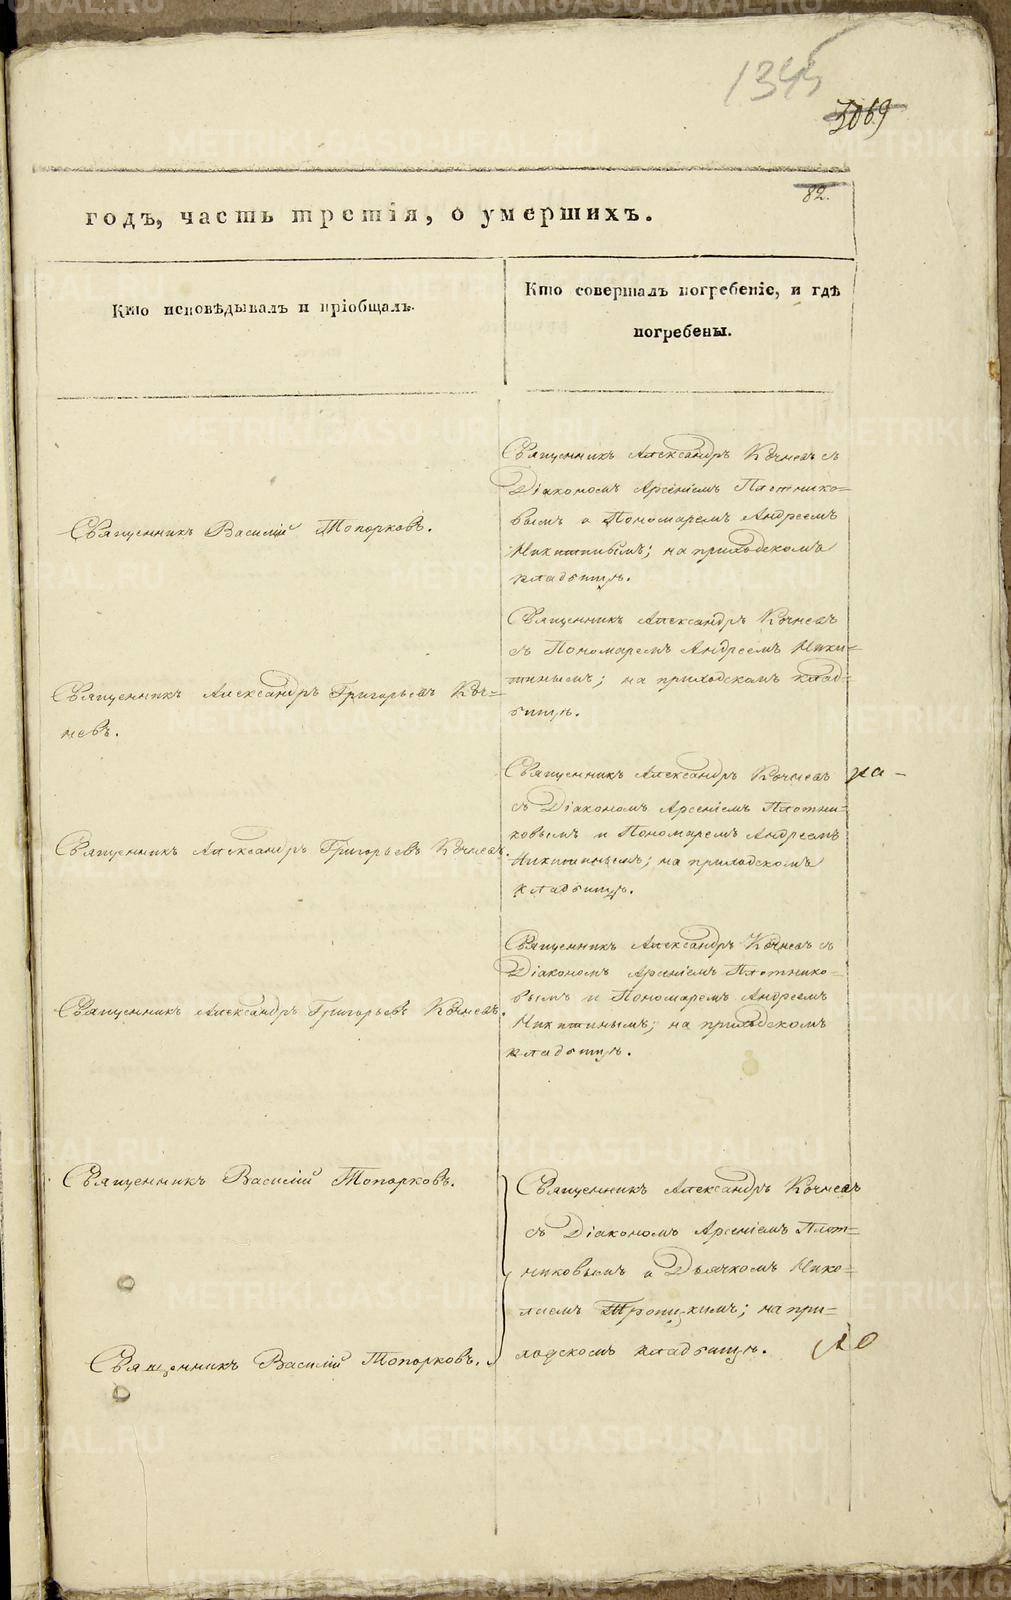 1345
3069
82.
годъ, часть третія, о умершихъ.
Кто исповѣдывалъ и пріобщалъ.
Кто совершалъ погребеніе, и гдѣ
погребены.
Священникъ Василій Топорковъ.
Священникъ Александръ Кочневъ съ
Діакономъ Арсеніемъ Плотнико=
вымъ и Пономаремъ Андреемъ
Никитинымъ; на приходскомъ
кладбищѣ.
Священникъ Александръ Григорьевъ Коч=
невъ.
Священникъ Александръ Кочневъ
съ Пономаремъ Андреемъ Ники=
тинымъ; на приходскомъ клад=
бищѣ.
Священникъ Александръ Григорьевъ Кочневъ.
Священникъ Александръ Кочневъ
съ Діакономъ Арсеніемъ Плотни=
ковымъ и Пономаремъ Андреемъ
Никитинымъ; на приходскомъ
кладбищѣ.
Священникъ Александръ Григорьевъ Кочневъ.
Священникъ Александръ Кочневъ съ
Діакономъ Арсеніемъ Плотнико=
вымъ и Пономаремъ Андреемъ
Никитинымъ; на приходскомъ
кладбищѣ.
Священникъ Василій Топорковъ.
Священникъ Василій Топорковъ.
Священникъ Александръ Кочневъ
съ Діакономъ Арсеніемъ Плот=
никовымъ и Дьячкомъ Нико=
лаемъ Троицкимъ; на при=
ходскомъ кладбищѣ.
METRIKI.GASO-URAL.RU